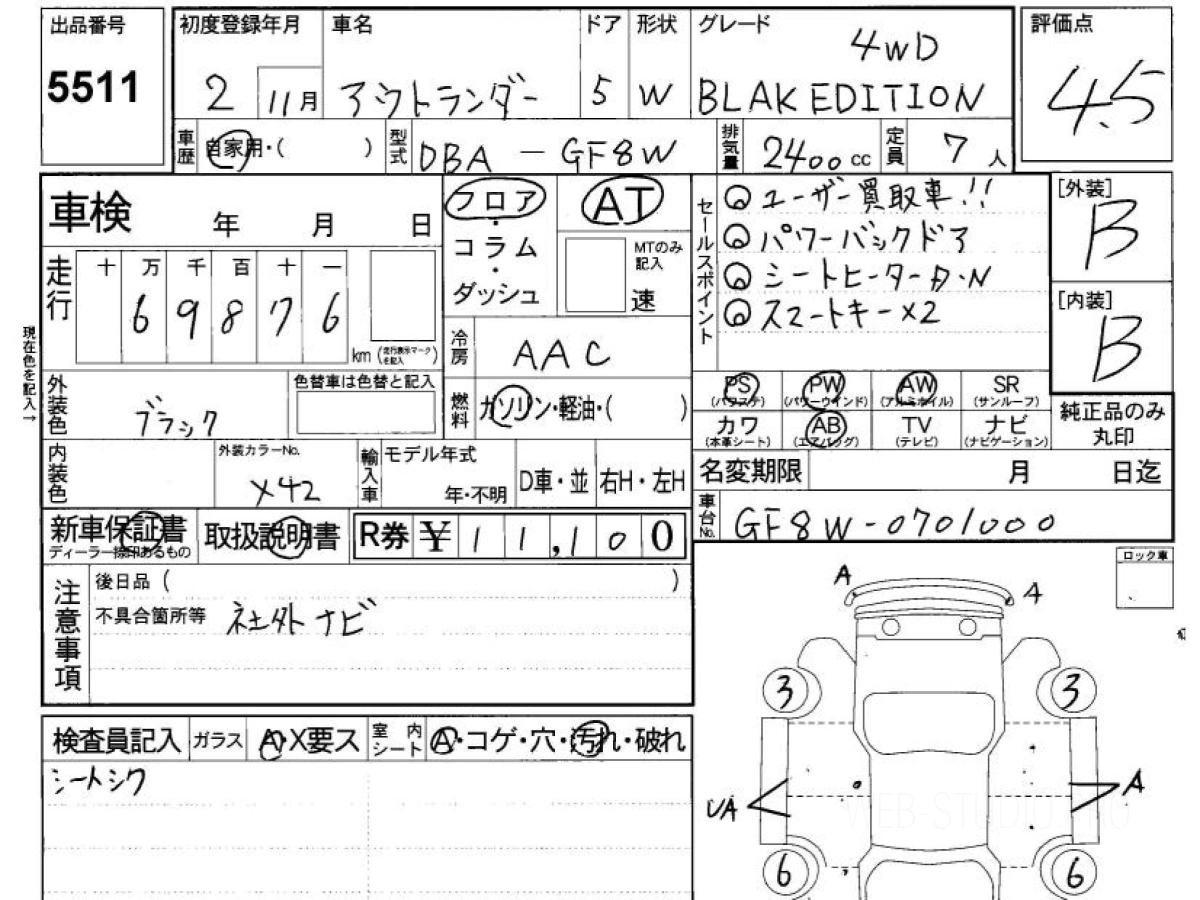 出品番号
5511
初度登録年月
2 11月
車名
アウトランダー
ドア
5
形状
W
グレード
4WD
BLAK EDITION
評価点
4.5
車歴
自家用・( )
型式
DBA - GF8W
排気量
2400 cc
定員
7 人
車検 年 月 日
走行
十 万 千 百 十 一
6 9 8 7 6
km (走行表示マークを記入)
現在色を記入→
フロア・コラム・ダッシュ
AT
MTのみ記入
速
冷房
AAC
燃料
ガソリン・軽油・( )
セールスポイント
ユーザー買取車!!
パワーバックドア
シートヒーターD・N
スマートキー×2
[外装]
B
[内装]
B
PS (パワステ)
PW (パワーウインド)
AW (アルミホイル)
SR (サンルーフ)
カワ (本革シート)
AB (エアバッグ)
TV (テレビ)
ナビ (ナビゲーション)
純正品のみ丸印
外装色
ブラック
色替車は色替と記入
内装色
外装カラーNo.
X42
輸入車
モデル年式
年・不明
D車・並
右H・左H
名変期限 月 日迄
車台No.
GF8W-0701000
新車保証書
ディーラー捺印あるもの
取扱説明書
R券 ¥11,100
注意事項
後日品 ( )
不具合箇所等 社外ナビ
検査員記入
ガラス
A・X要ス
室内シート
A・コゲ・穴・汚れ・破れ
シートシワ
ロック車
A
A
3
3
UA
A
6
6
WEB-STUDIO.PRO